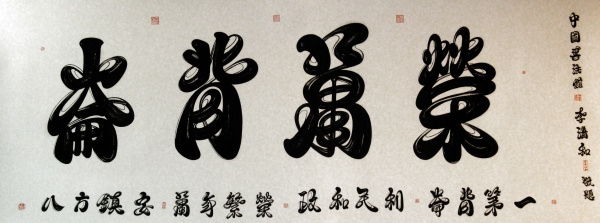 崙背萬榮
八方鎮安 萬年繁榮 政和民利 崙背第一
中国書法 李滿和 敬題